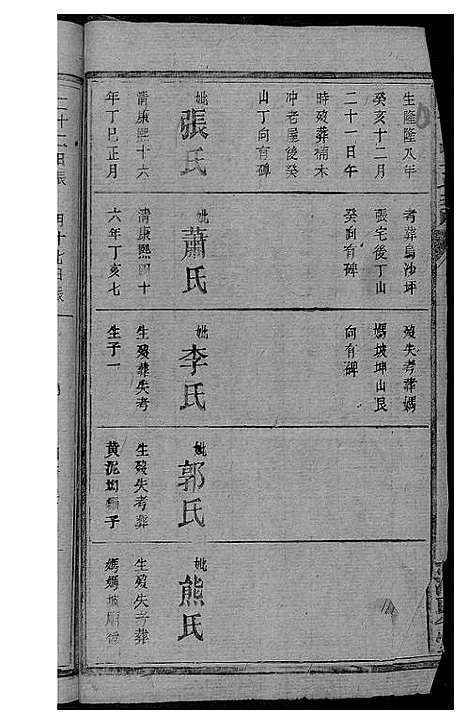 生隆隆八年
癸亥十二月
二十一日午
時歿葬楠木
冲老屋後癸
山丁向有碑
妣張氏
清康熙十六
年丁巳正月
考葬烏沙坪
張宅後丁山
癸向有碑
妣蕭氏
清康熙四十
六年丁亥七
歿失考葬媽
媽坡坤山艮
向有碑
妣李氏
生歿葬失考
生子一
妣郭氏
生歿失考葬
黃泥坳獅子
妣熊氏
生歿失考葬
媽媽坡廟後